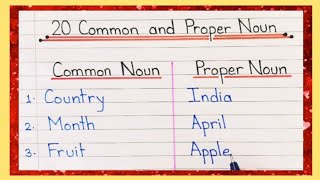 20 Common and Proper Noun
Common Noun Proper Noun
1. Country India
2. Month April
3. Fruit Apple